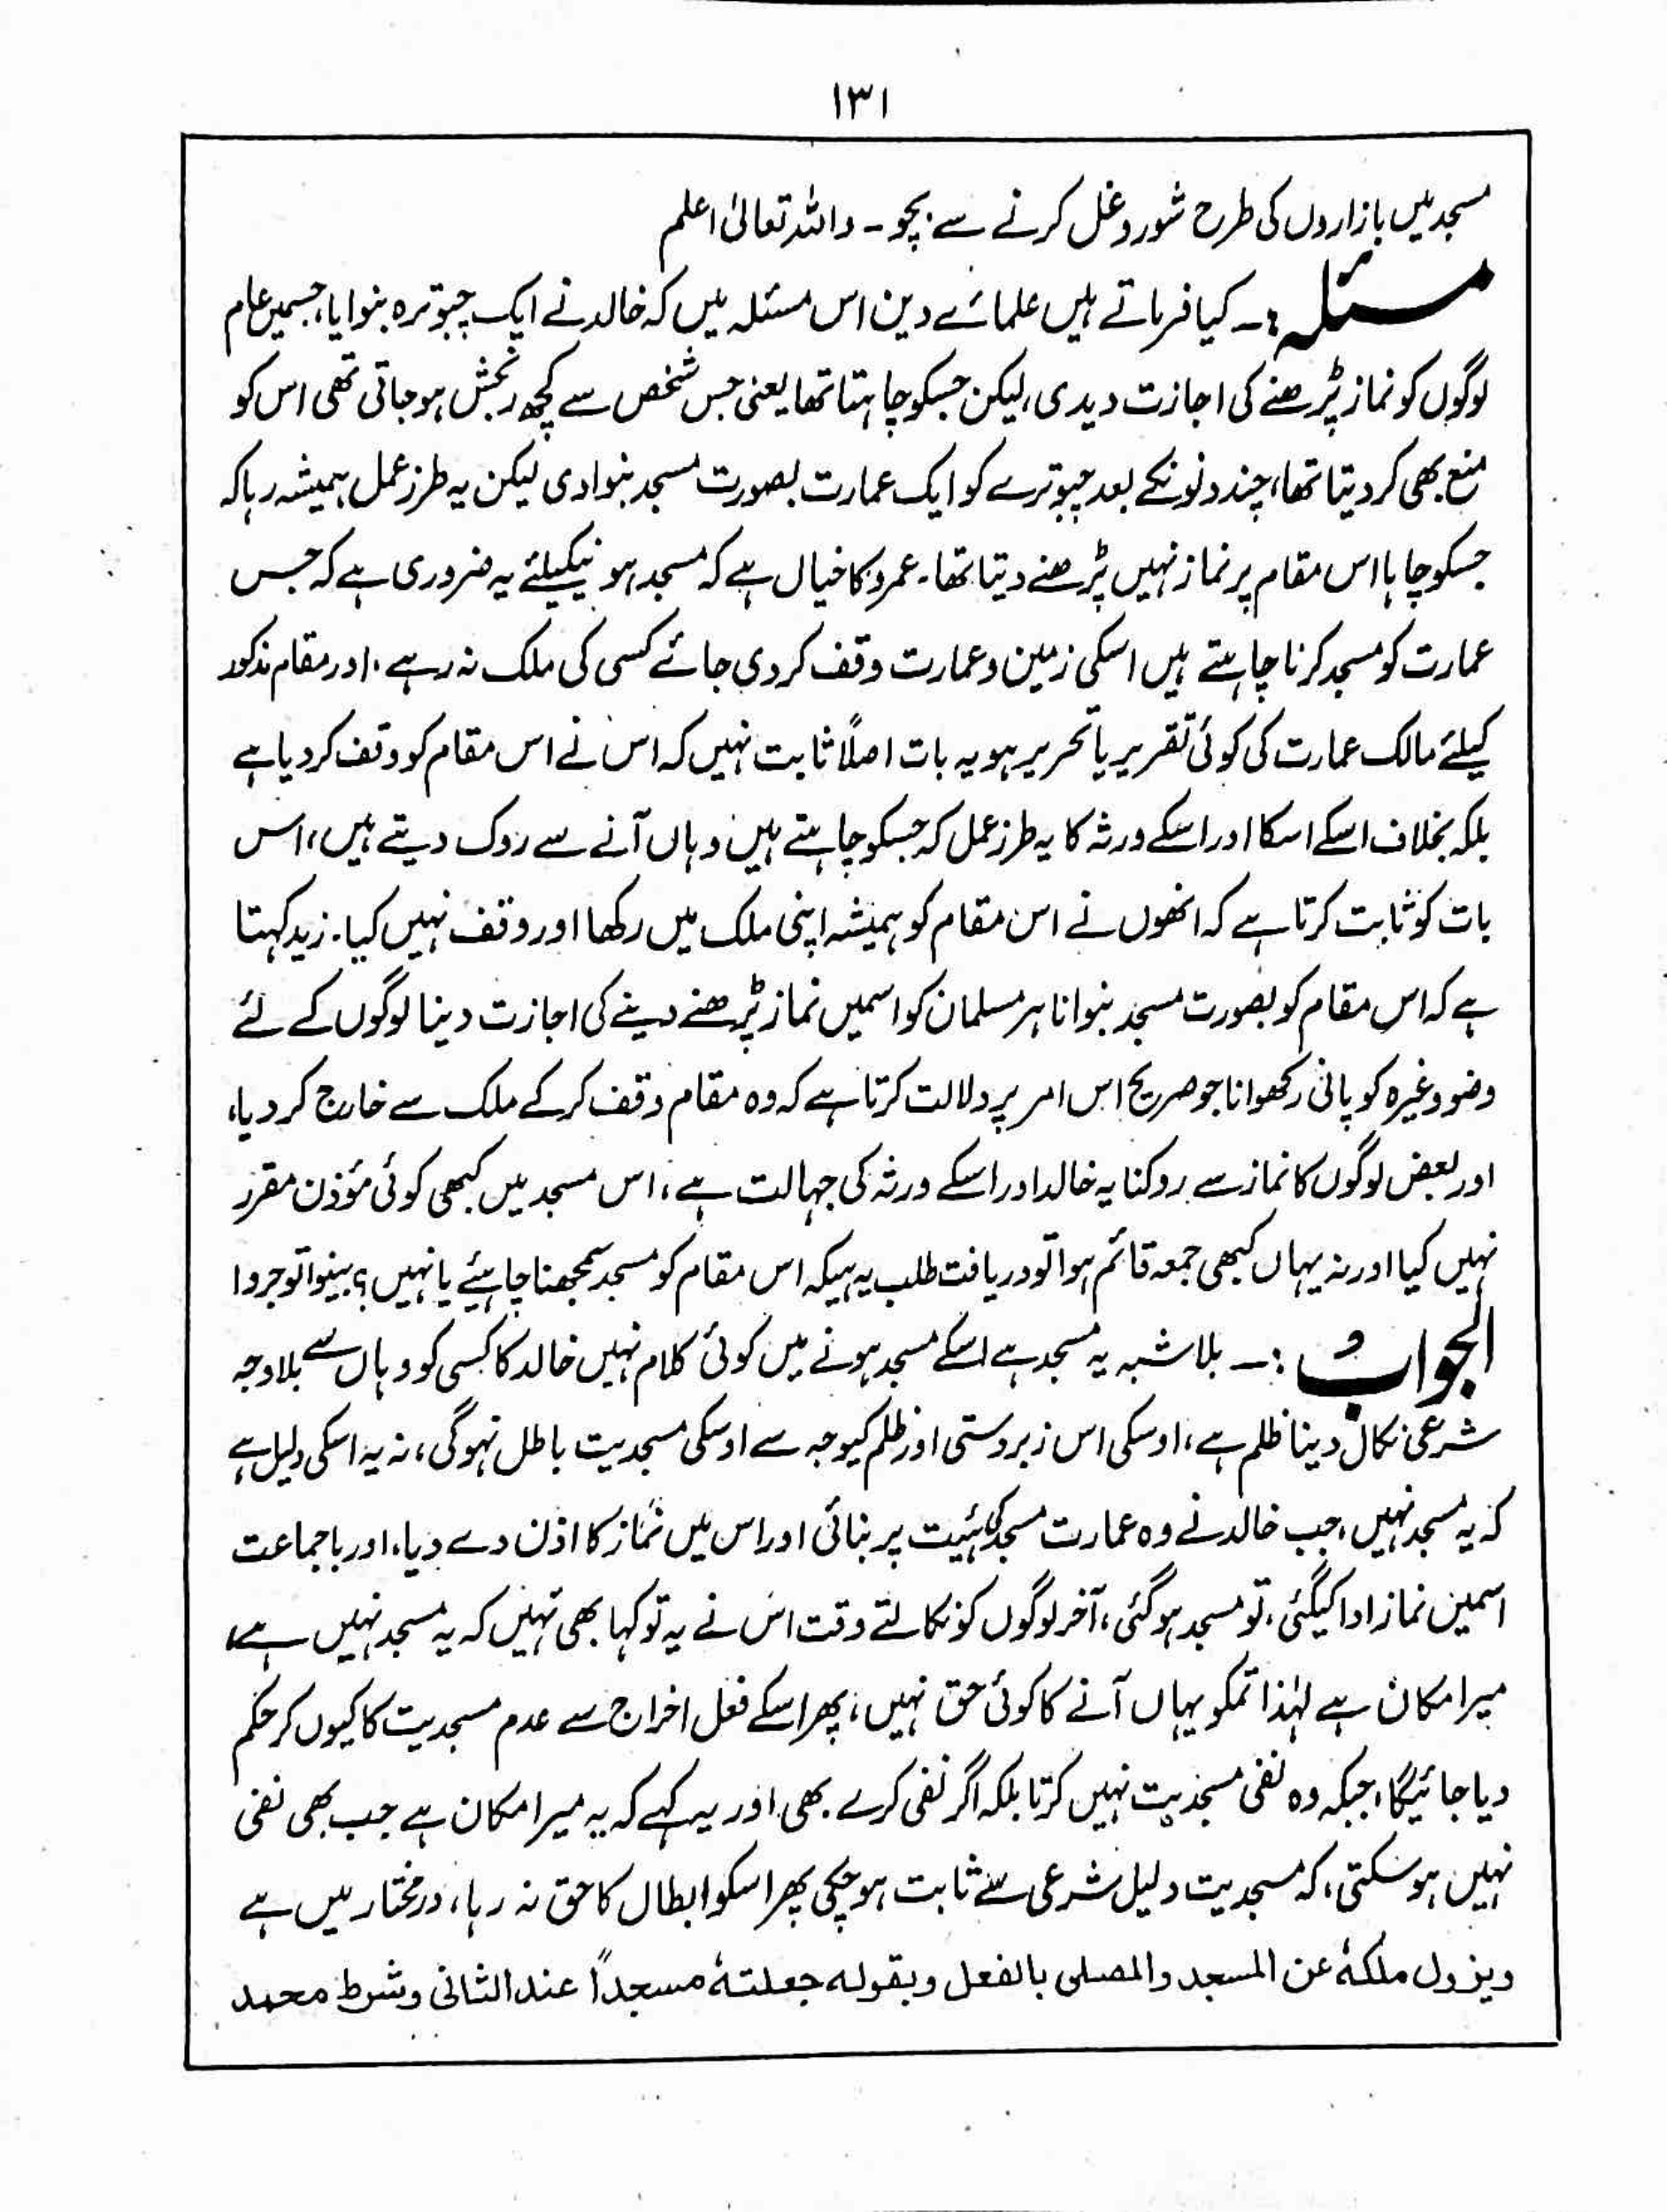 ۱۳۱
مسجد میں بازاروں کی طرح شور و غل کرنے سے بچو ۔ واللہ تعالیٰ اعلم
مسئلہ :۔ کیا فرماتے ہیں علمائے دین اس مسئلہ میں کہ خالد نے ایک چبوترہ بنوایا، جسمیں عام
لوگوں کو نماز پڑھنے کی اجازت دیدی، لیکن جسکو چاہتا تھا یعنی جس شخص سے کچھ رنجش ہو جاتی تھی اس کو
منع بھی کر دیتا تھا، چند دنوں کے بعد چبوترے کو ایک عمارت بصورت مسجد بنوادی لیکن یہ طرز عمل ہمیشہ رہا کہ
جسکو چاہا اس مقام پر نماز نہیں پڑھنے دیتا تھا۔ عمرو کا خیال ہے کہ مسجد ہونیکیلئے یہ ضروری ہے کہ جس
عمارت کو مسجد کرنا چاہتے ہیں اسکی زمین و عمارت وقف کر دی جائے کسی کی ملک نہ رہے ۔ اور مقام مذکور
کیلئے مالک عمارت کی کوئی تقریر یا تحریر ہو یہ بات اصلاً ثابت نہیں کہ اس نے اس مقام کو وقف کر دیا ہے
بلکہ بخلاف اسکے اسکا اور اسکے ورثہ کا یہ طرز عمل کہ جسکو چاہتے ہیں وہاں آنے سے روک دیتے ہیں، اس
بات کو ثابت کرتا ہے کہ انھوں نے اس مقام کو ہمیشہ اپنی ملک میں رکھا اور وقف نہیں کیا۔ زید کہتا
ہے کہ اس مقام کو بصورت مسجد بنوانا ہر مسلمان کو اسمیں نماز پڑھنے دینے کی اجازت دینا لوگوں کے لئے
وضو وغیرہ کو پانی رکھوانا جو صریح اس امر پر دلالت کرتا ہے کہ وہ مقام وقف کر کے ملک سے خارج کر دیا،
اور بعض لوگوں کا نماز سے روکنا یہ خالد اور اسکے ورثہ کی جہالت ہے، اس مسجد میں کبھی کوئی مؤذن مقرر
نہیں کیا اور نہ یہاں کبھی جمعہ قائم ہوا تو دریافت طلب یہ ہیکہ اس مقام کو مسجد سمجھنا چاہئیے یا نہیں؟ بینوا توجروا
الجواب :۔ بلا شبہ یہ مسجد ہے اسکے مسجد ہونے میں کوئی کلام نہیں خالد کا کسی کو وہاں سے بلا وجہ
شرعی نکال دینا ظلم ہے، اوسکی اس زبردستی اور ظلم کیوجہ سے اوسکی مسجدیت باطل نہوگی، نہ یہ اسکی دلیل ہے
کہ یہ مسجد نہیں، جب خالد نے وہ عمارت مسجد کی ہئیت پر بنائی اور اس میں نماز کا اذن دے دیا، اور باجماعت
اسمیں نماز ادا کیگئی، تو مسجد ہو گئی، آخر لوگوں کو نکالتے وقت اس نے یہ تو کہا بھی نہیں کہ یہ مسجد نہیں ہے،
میرا مکان ہے لہٰذا تمکو یہاں آنے کا کوئی حق نہیں، پھر اسکے فعل اخراج سے عدم مسجدیت کا کیوں کر حکم
دیا جائیگا، جبکہ وہ نفی مسجدیت نہیں کرتا بلکہ اگر نفی کرے بھی اور یہ کہے کہ یہ میرا مکان ہے جب بھی نفی
نہیں ہو سکتی، کہ مسجدیت دلیل شرعی سے ثابت ہو چکی پھر اسکو ابطال کا حق نہ رہا، درمختار میں ہے
ویزول ملکہٗ عن المسجد والمصلی بالفعل وبقولہ جعلتہٗ مسجداً عند الثانی وشرط محمد